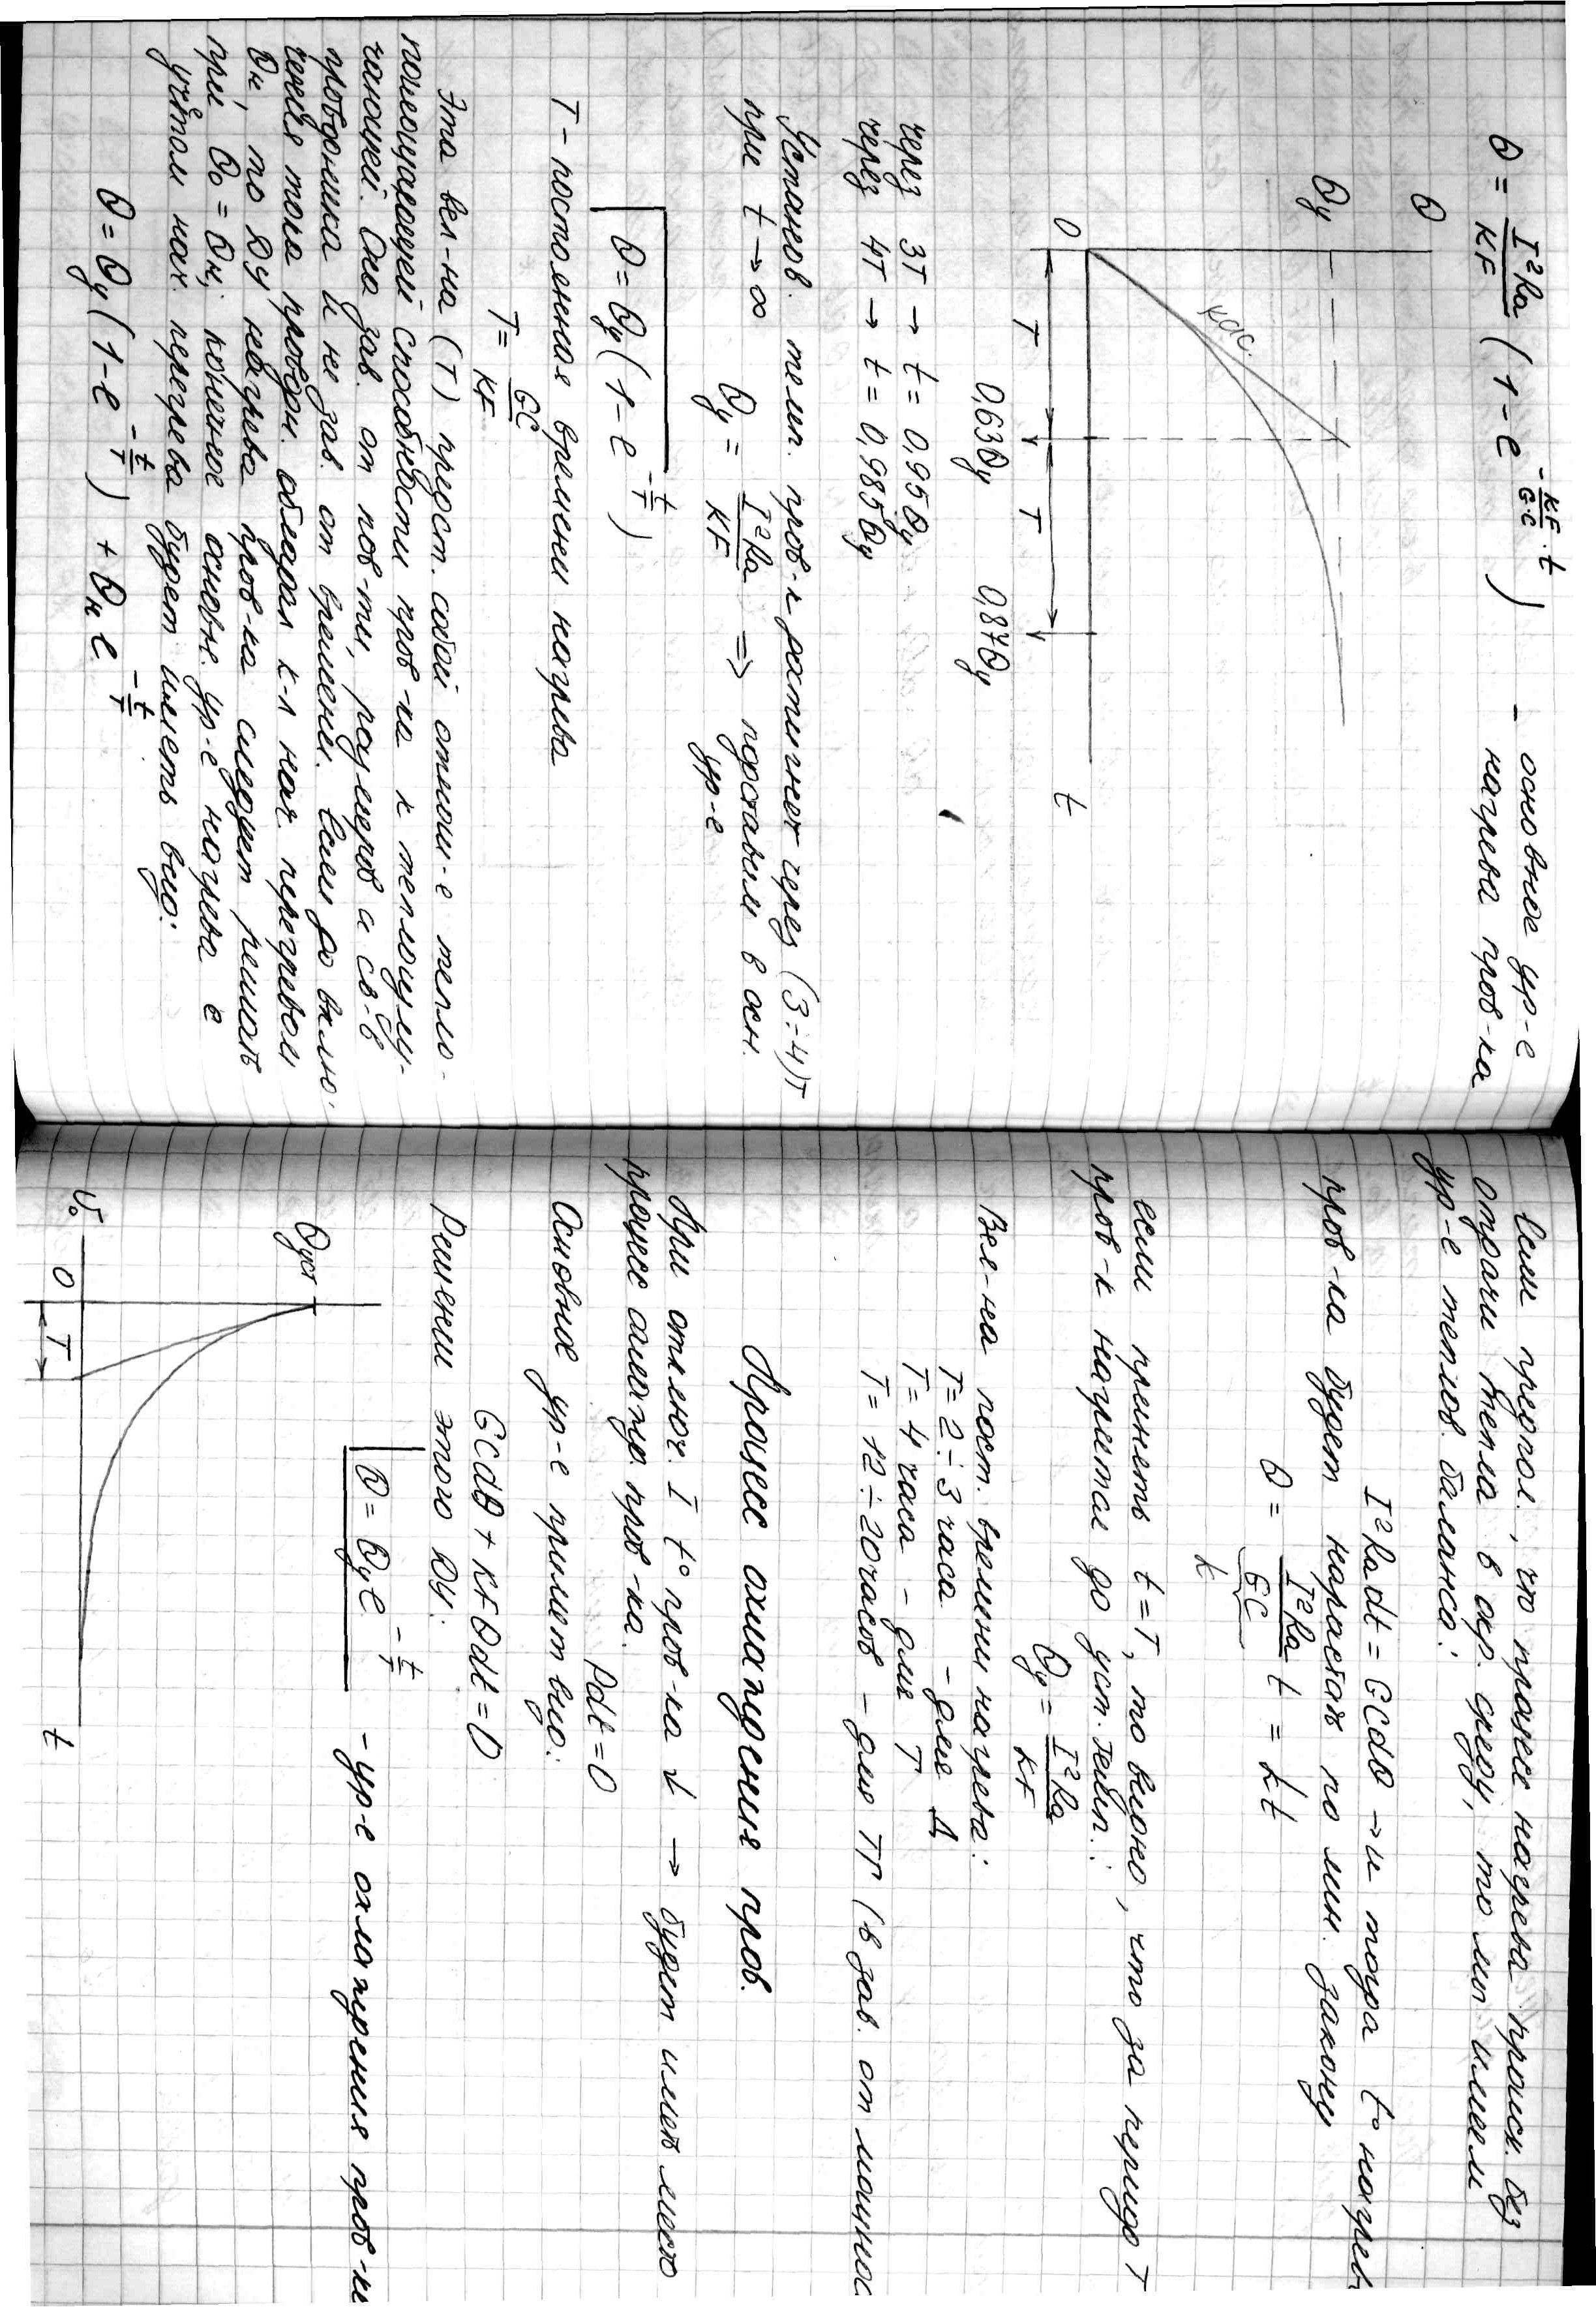 θ = I²Ra/KF (1 - e^(-KF/GC · t)) - основное ур-е
нагрева пров-ка
θ
θу
кас.
0
T
T
t
0,63θу
0,87θу
через 3T → t = 0,95θу
через 4T → t = 0,985θу
Установ. темп. пров-к достигнет через (3÷4)T
при t → ∞
θу = I²Ra/KF ⇒ подставим в осн.
ур-е
θ = θу (1 - e^(-t/T))
T - постоянная времени нагрева
T = GC/KF
Эта вел-на (T) предст. собой отнош-е тепло-
поглощающей способности пров-ка к теплоизлу-
чающей. Она зав. от пов-ти, размеров и св-в
проводника и не зав. от времени. Если до вклю-
чения тока проводн. обладал к-л нач. перегревом
θн, то ДУ нагрева пров-ка следует решать
при θ₀ = θн; конечное основн. ур-е нагрева с
учётом нач. перегрева будет иметь вид:
θ = θу (1 - e^(-t/T)) + θн e^(-t/T)
Если предпол., что процесс нагрева происх. без
отдачи тепла в окр. среду, то мы имеем
ур-е теплов. баланса:
I²Ra dt = GCdθ → и тогда t° нагрев
пров-ка будет нарастать по лин. закону
θ = I²Ra/GC t = kt
k
если принять t = T, то видно, что за период T
пров-к нагреется до уст. темп.:
θу = I²Ra/KF
Вел-на пост. времени нагрева:
T = 2÷3 часа - для Д
T = 4 часа - для T
T = 12÷20 часов - для ТГ (в зав. от мощнос
Процесс охлаждения пров.
При отключ. I t° пров-ка ↓ → будет иметь место
процесс охлажд пров-ка. Pdt = 0
Основное ур-е примет вид:
GCdθ + KFθdt = 0
Решении этого ДУ:
θ = θу e^(-t/T) - ур-е охлаждения пров-ка
θуст
0
T
t